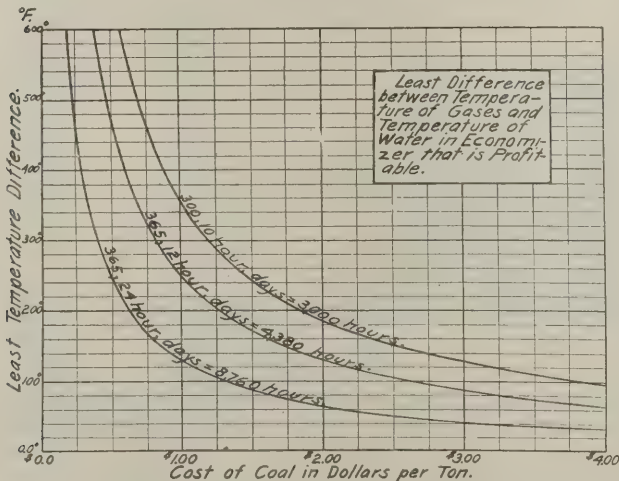 °F.
600°
500°
400°
300°
200°
100°
0.0°
Least Temperature Difference.
Least Difference
between Tempera-
ture of Gases and
Temperature of
Water in Economi-
zer that is Profit-
able.
300, 10 hour, days = 3000 hours.
365, 12 hour, days = 4,380 hours.
365, 24 hour, days = 8,760 hours.
$0.0 $1.00 $2.00 $3.00 $4.00
Cost of Coal in Dollars per Ton.